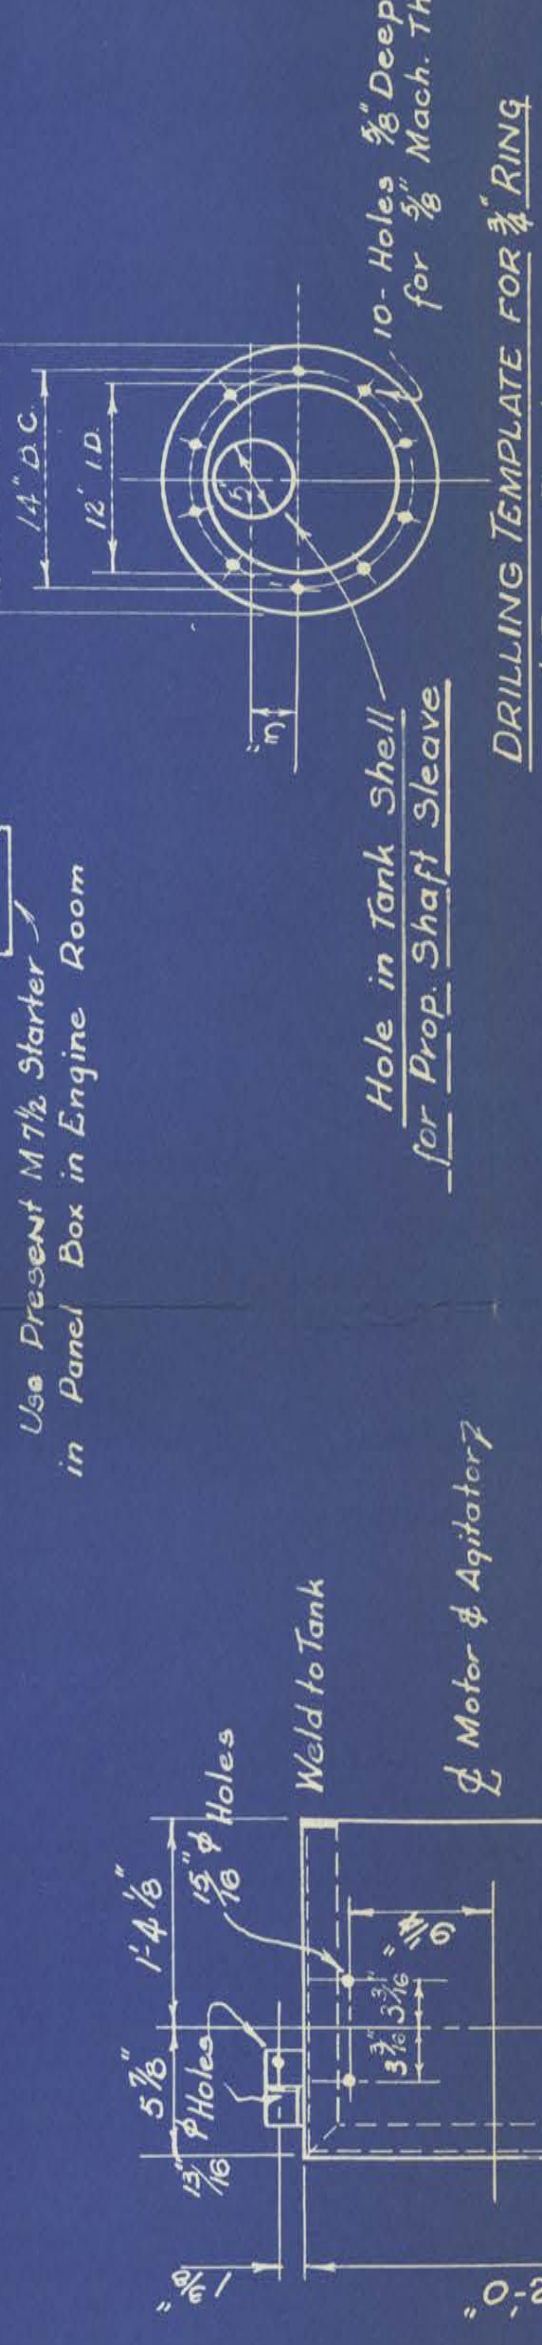 Use Present M 7½ Starter
in Panel Box in Engine Room
14" D.C.
12" I.D.
5"
3"
10- Holes 5/8" Deep
for 5/8" Mach. Th
Hole in Tank Shell
for Prop. Shaft Sleave
DRILLING TEMPLATE FOR 3/4" RING
1'-4 1/8"
5 7/8"
15/16" ϕ Holes
13/16" ϕ Holes
Weld to Tank
3 3/16" 3 3/16"
1 3/8"
℄ Motor & Agitator